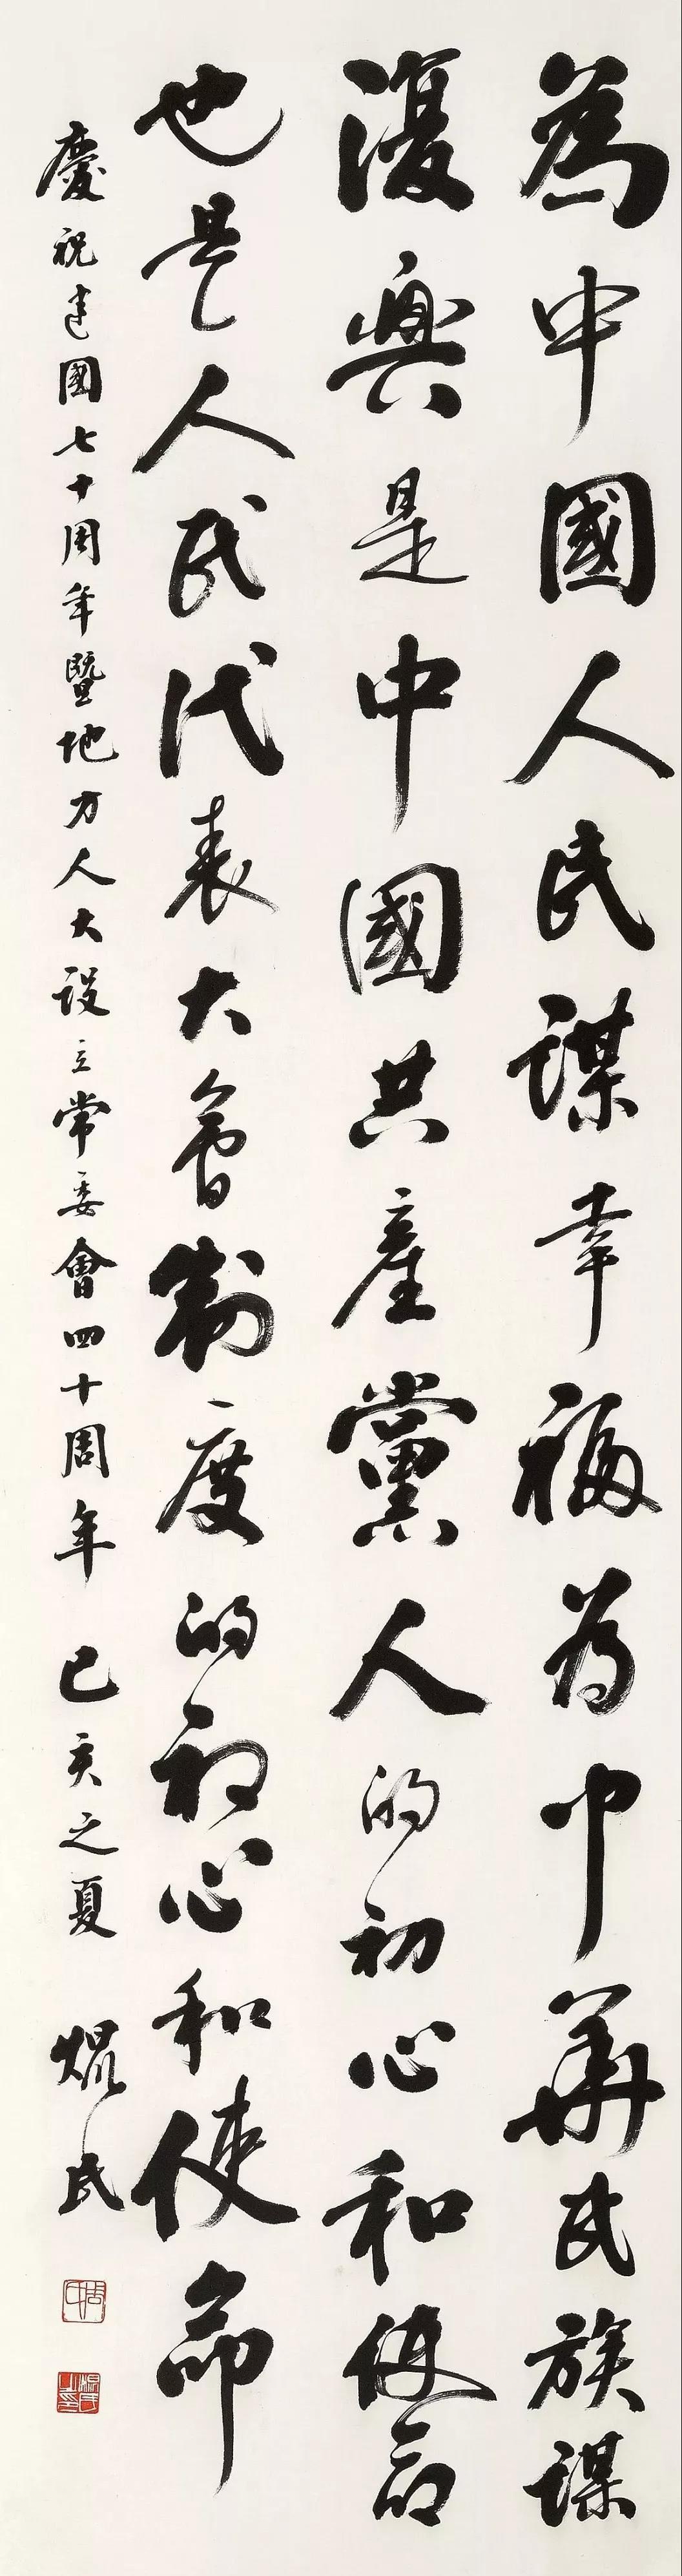 為中國人民謀幸福為中華民族謀
復興是中國共產黨人的初心和使命
也是人民代表大會制度的初心和使命
慶祝建國七十周年暨地方人大設立常委會四十周年 己亥之夏 焜民